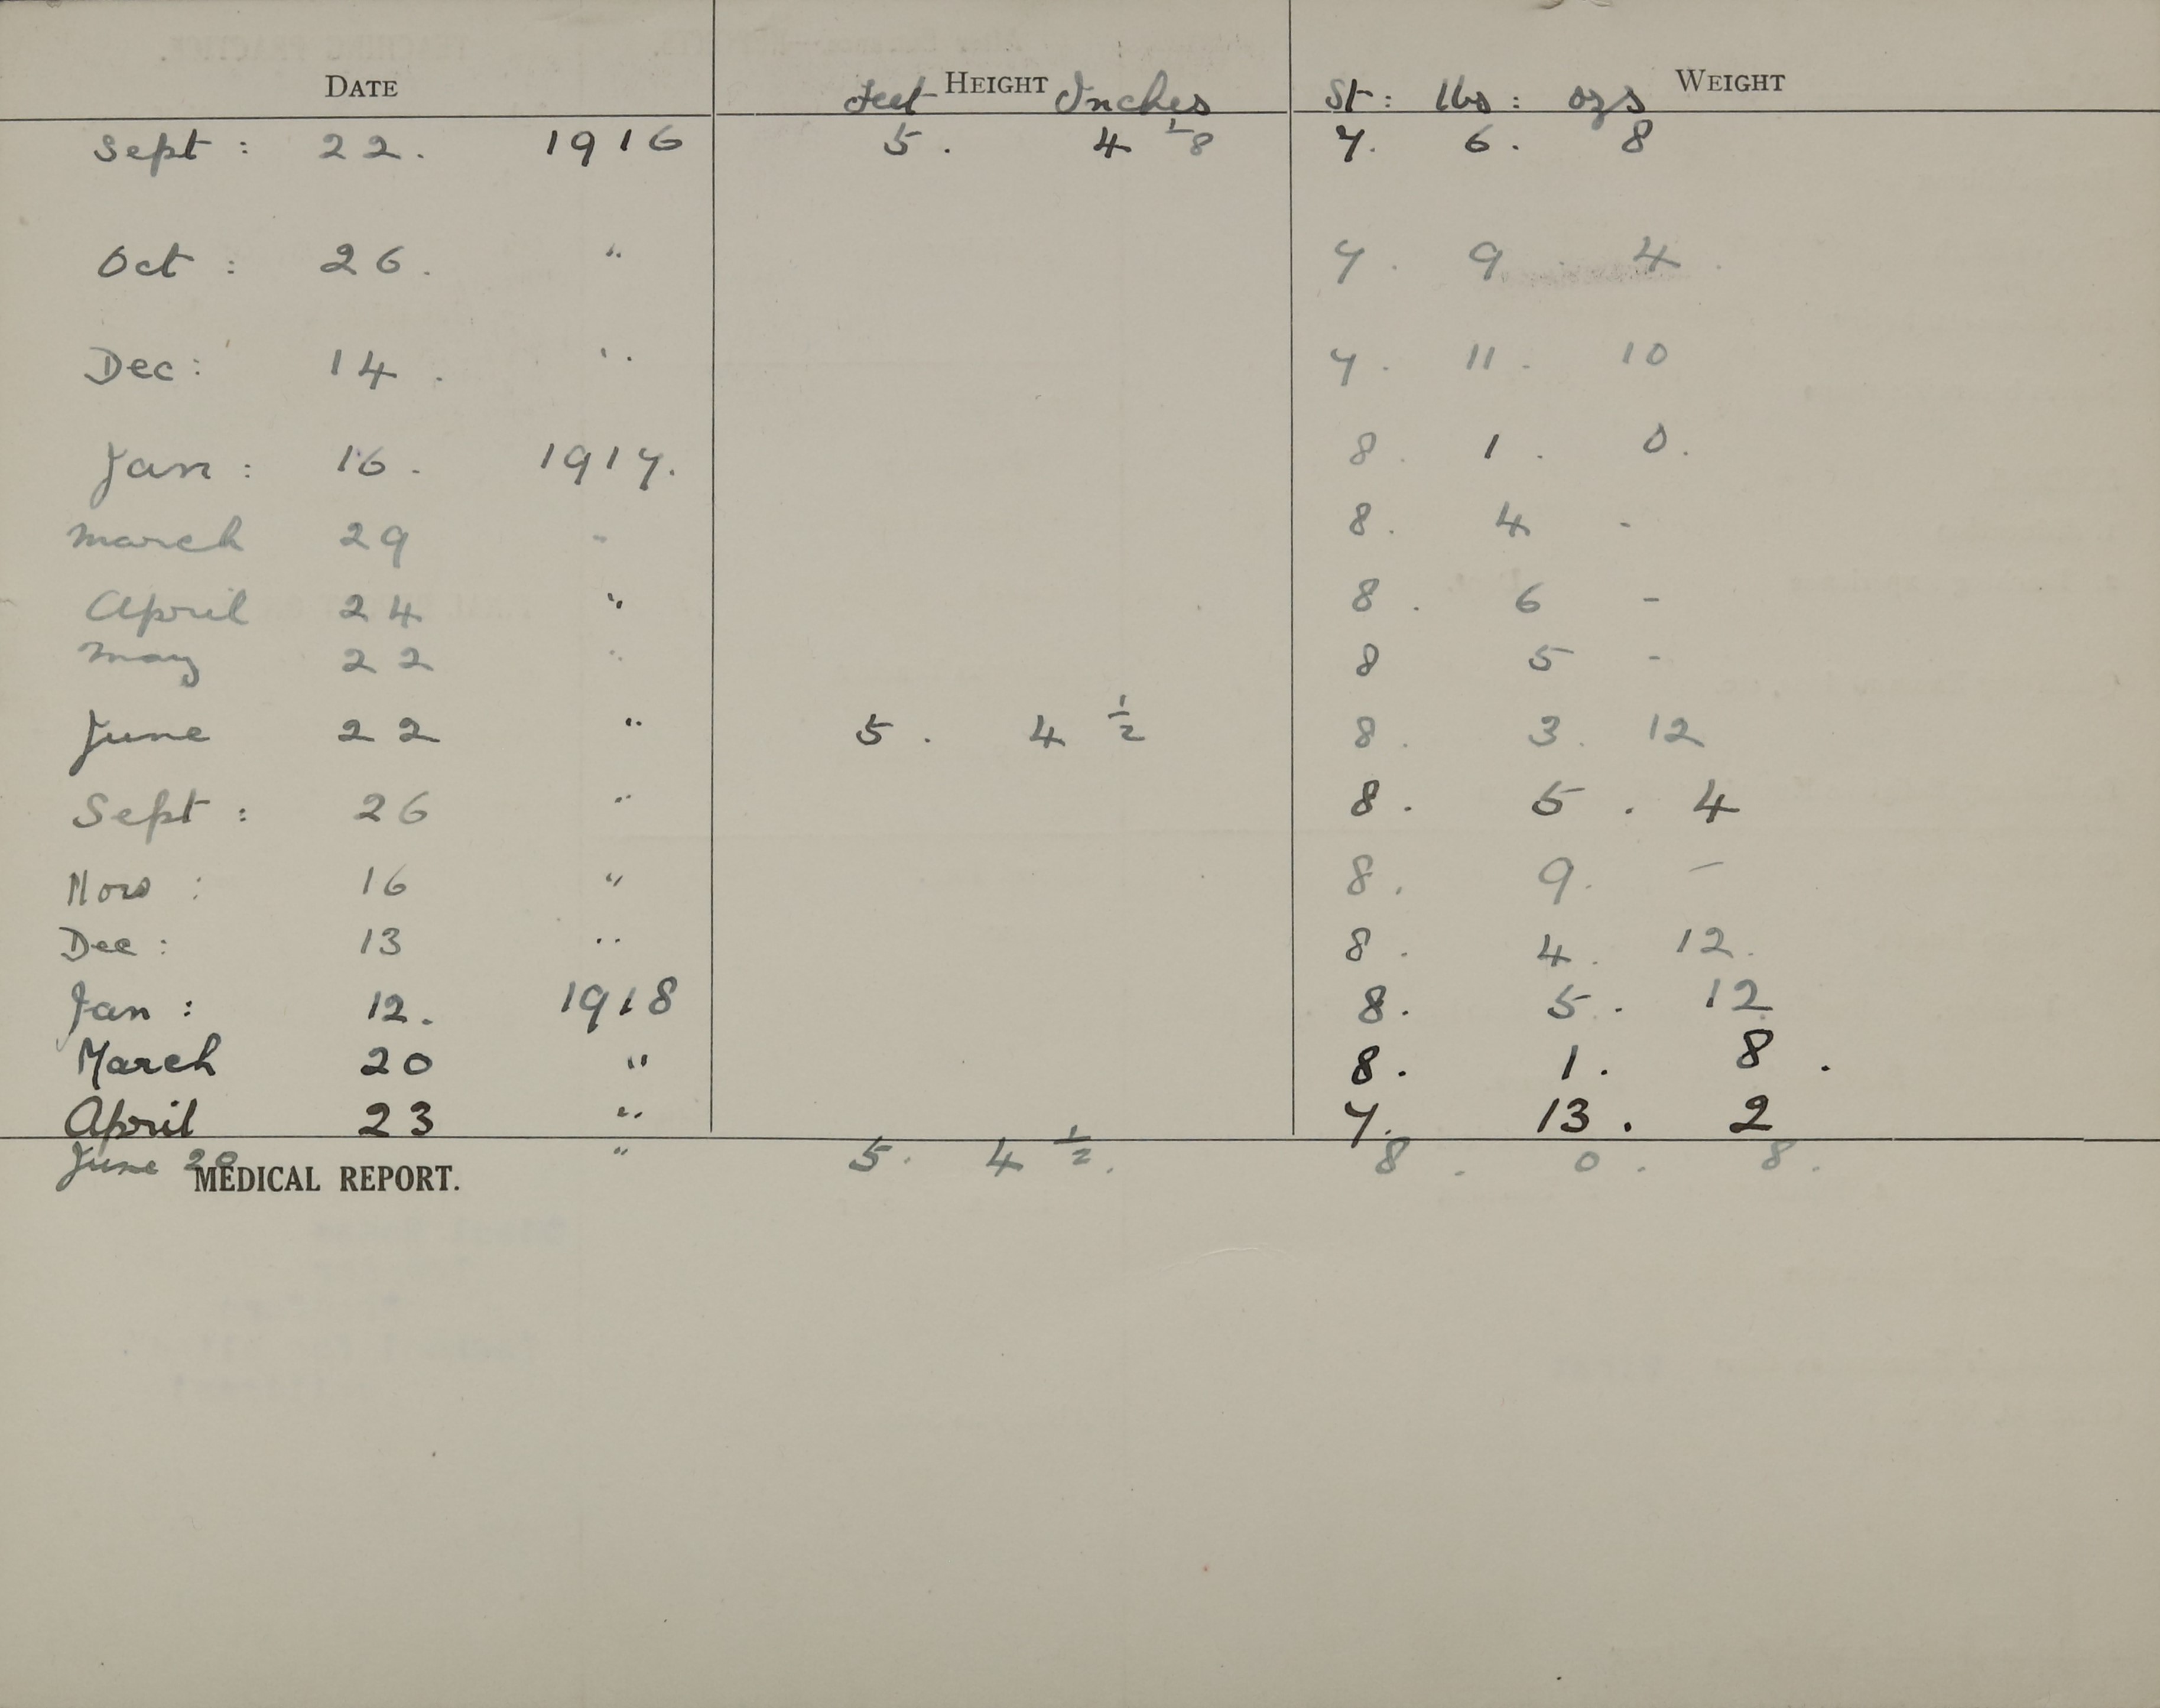 DATE Feet HEIGHT Inches St: lbs: ozs WEIGHT
Sept: 22. 1916 5. 4 1/8 7. 6. 8
Oct: 26. " 7. 9 4.
Dec: 14. " 7. 11. 10
Jan: 16. 1917. 8. 1. 0.
March 29 " 8. 4 -
April 24 " 8. 6 -
May 22 " 8 5 -
June 22 " 5. 4 1/2 8. 3. 12
Sept: 26 " 8. 5. 4
Nov: 16 " 8. 9. -
Dec: 13 " 8. 4. 12.
Jan: 12. 1918 8. 5. 12
March 20 " 8. 1. 8.
April 23 " 7. 13. 2
June 20 " 5. 4 1/2. 8. 0. 8.
MEDICAL REPORT.